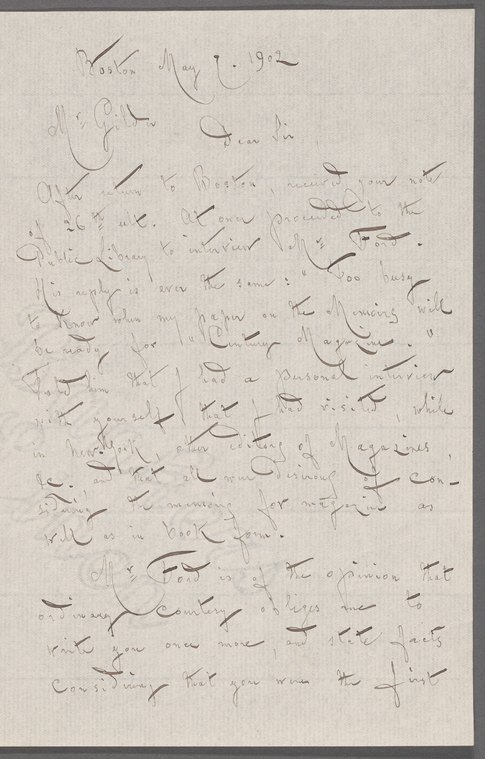 Boston May 7. 1902
Mr. Gilder
Dear Sir,
After return to Boston, received your note
of 26th ult. At once proceeded to the
Public Library to interview Mr. Ford.
His reply is ever the same: "Too busy
to know when my paper on the Memoirs will
be ready for "Century Magazine."
Told him that I had a personal interview
with yourself, that I had visited, while
in New York, other editors of Magazines,
&c., and that all were desirous of con-
sidering the memoirs for magazine as
well as in book form.
Mr. Ford is of the opinion that
ordinary courtesy obliges me to
write you once more, and state facts
considering that you were the first